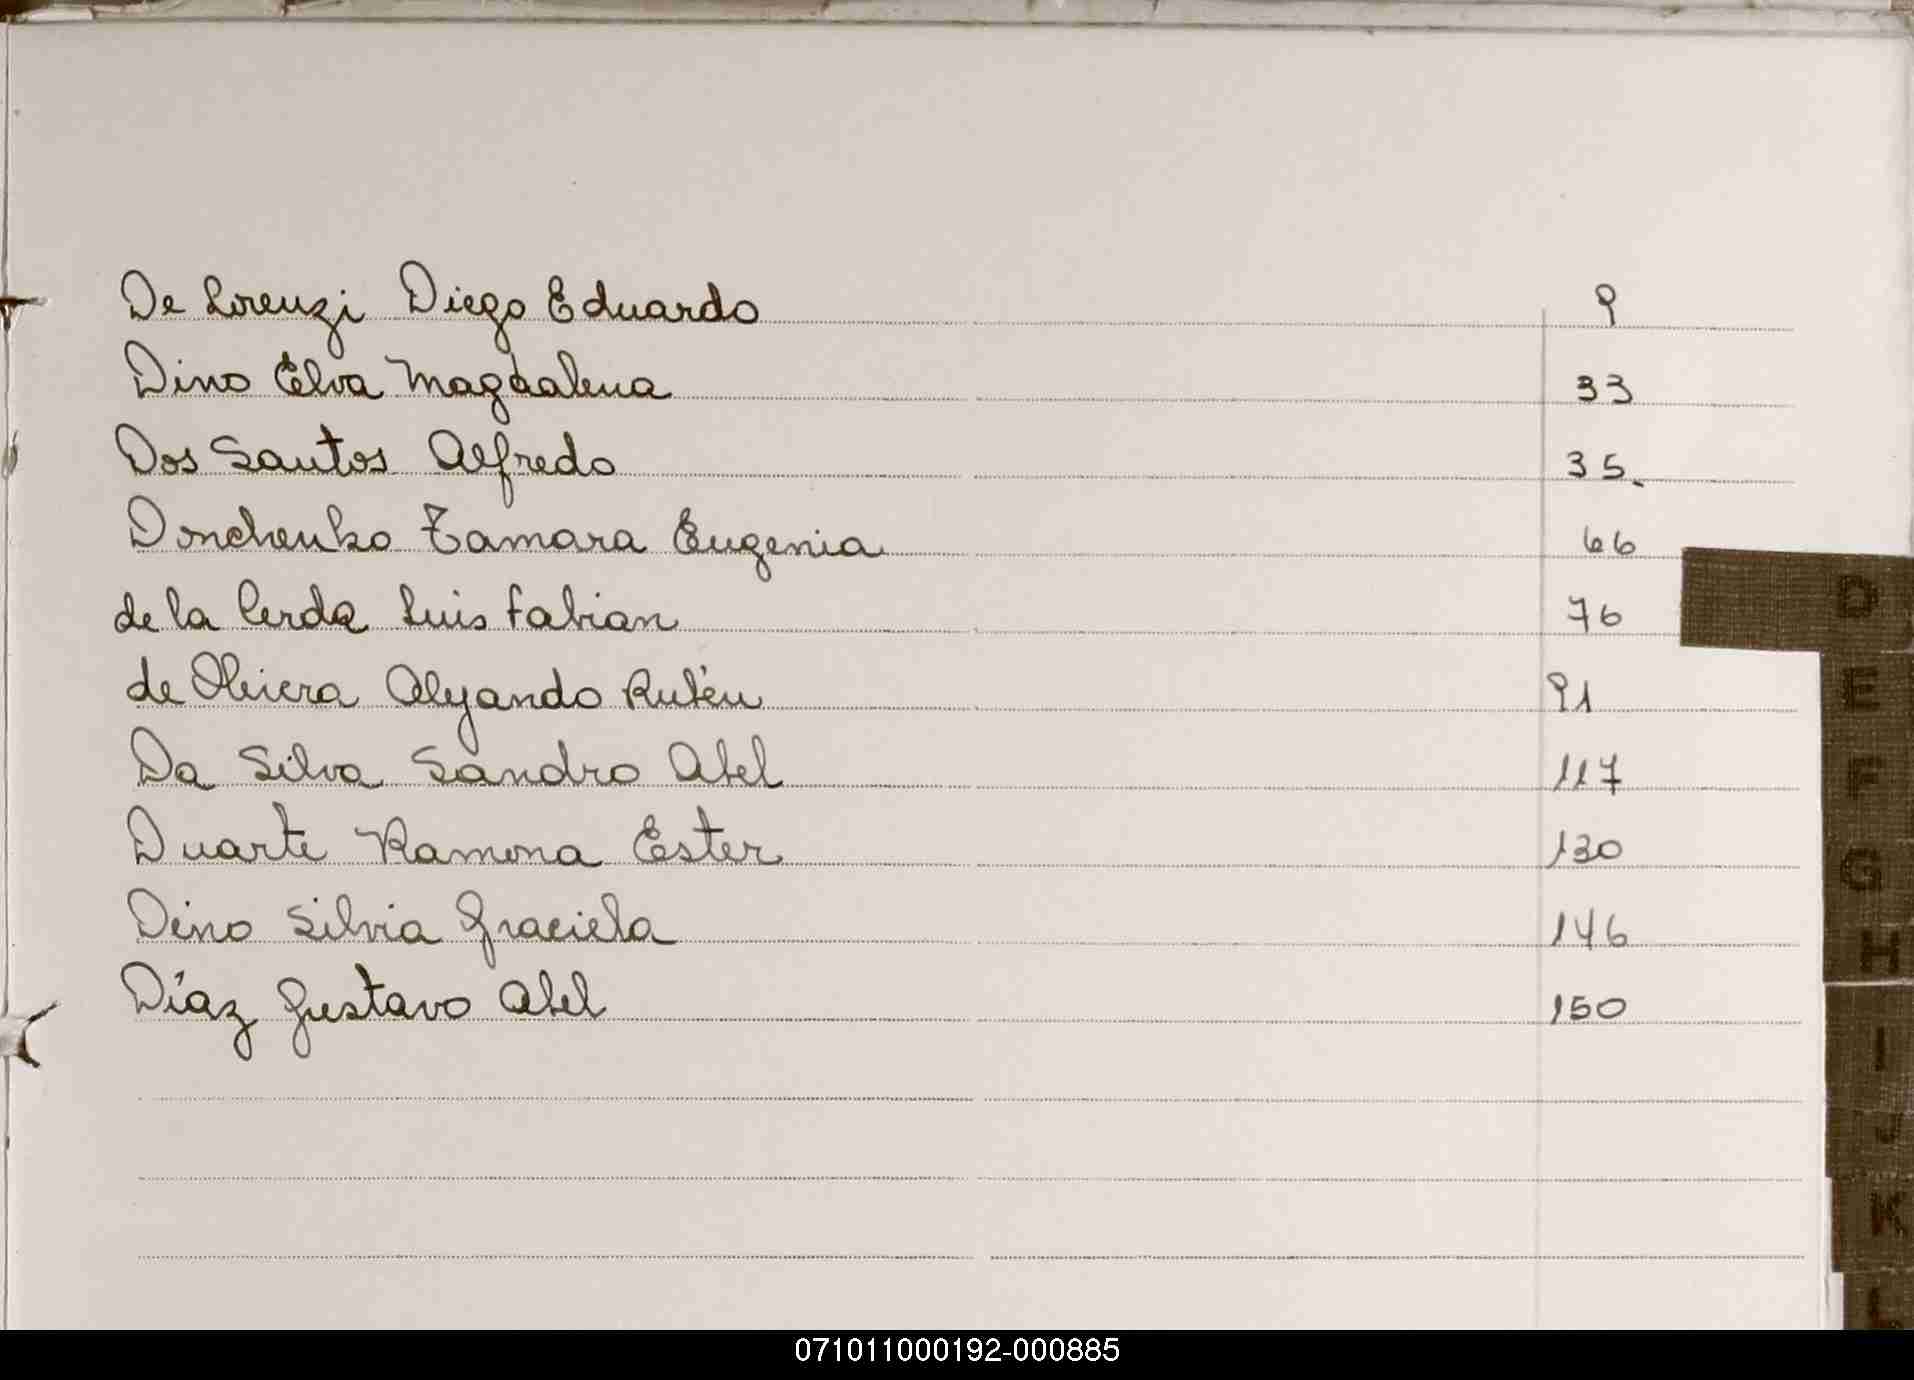 De Lorenzi Diego Eduardo 9
Dino Elva Magdalena 33
Dos Santos Alfredo 35.
Donchenko Tamara Eugenia 66
de la Cerda Luis Fabian 76
de Oliviera Alejandro Rubén 91
Da Silva Sandro Abel 117
Duarte Ramona Ester 130
Dino Silvia Graciela 146
Díaz Gustavo Abel 150
D
E
F
G
H
I
J
K
L
071011000192-000885